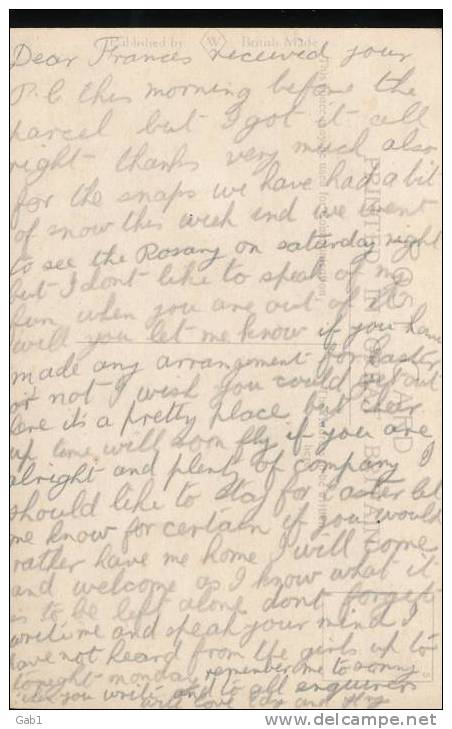 Published by W British Made
Dear Frances received your
P.C this morning before the
parcel but I got it all
right thanks very much also
for the snaps we have had a bit
of snow this week end we went
to see the Rosary on saturday night
but I dont like to speak of my
fun when you are out of it
will you let me know if you have
made any arrangement for Easter
or not I wish you could get out
here it's a pretty place but cheer
up time will soon fly if you are
alright and plenty of company I
should like to stay for Easter let
me know for certain if you would
rather have me home I will come
and welcome as I know what it
is to be left alone dont forget
write me and speak your mind I
have not heard from the girls up to
tonight monday remember me to
when you write and to all enquirers
with love
POST CARD
PRINTED IN GREAT BRITAIN
Gab1
http://www.delcampe.net